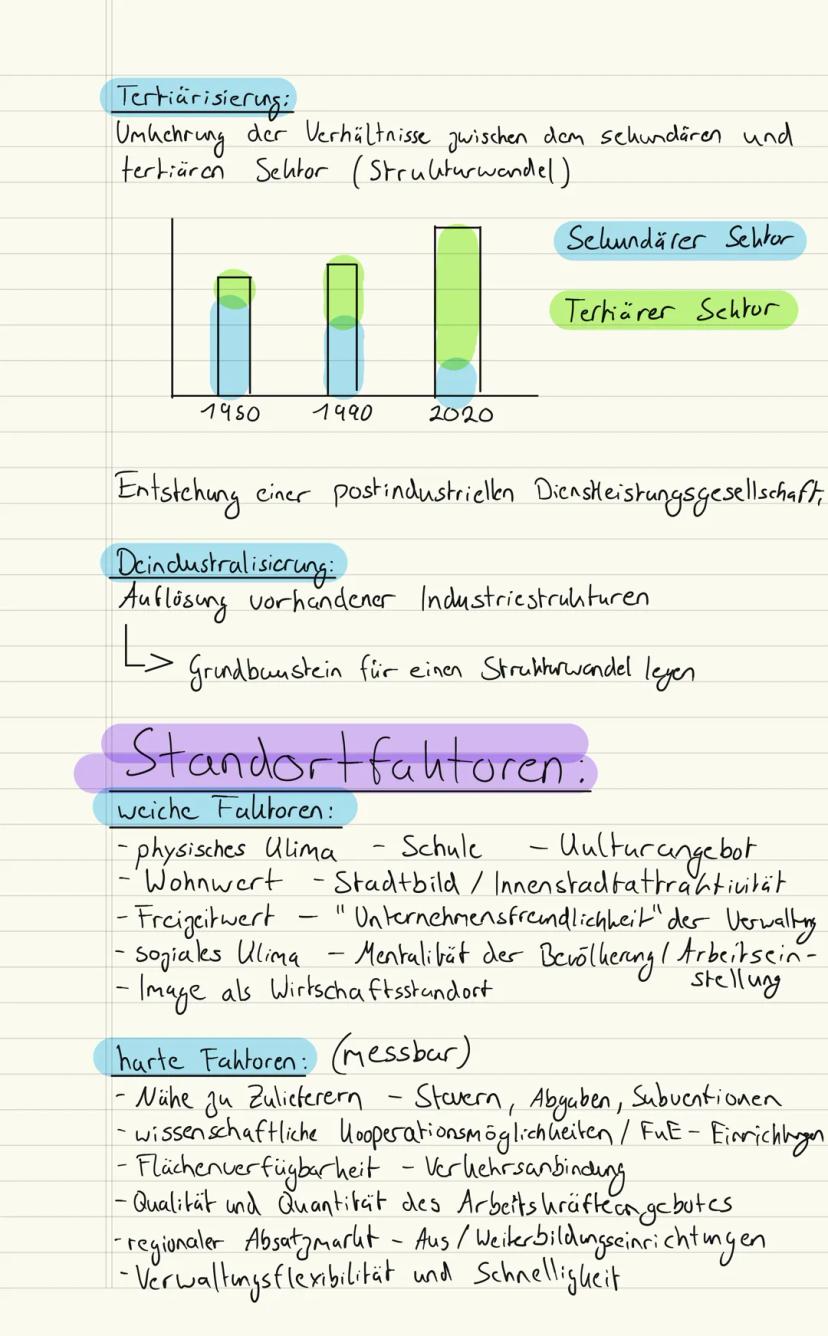 Tertiärisierung:
Umkehrung der Verhältnisse zwischen dem sekundären und
tertiären Sektor (Strukturwandel)
Sekundärer Sektor
Tertiärer Sektor
1950 1990 2020
Entstehung einer postindustriellen Dienstleistungsgesellschaft,
Deindustralisierung:
Auflösung vorhandener Industriestrukturen
Grundbaustein für einen Strukturwandel legen
Standortfaktoren:
weiche Faktoren:
- physisches Klima - Schule - Kulturangebot
- Wohnwert - Stadtbild / Innenstadtattraktivität
- Freizeitwert - "Unternehmensfreundlichkeit" der Verwaltung
- soziales Klima - Mentalität der Bevölkerung / Arbeitsein-
stellung
- Image als Wirtschaftsstandort
harte Faktoren: (messbar)
- Nähe zu Zulieferern - Steuern, Abgaben, Subventionen
- wissenschaftliche Kooperationsmöglichkeiten / FuE - Einrichtungen
- Flächenverfügbarkeit - Verkehrsanbindung
- Qualität und Quantität des Arbeitskräfteangebotes
- regionaler Absatzmarkt - Aus / Weiterbildungseinrichtungen
- Verwaltungsflexibilität und Schnelligkeit